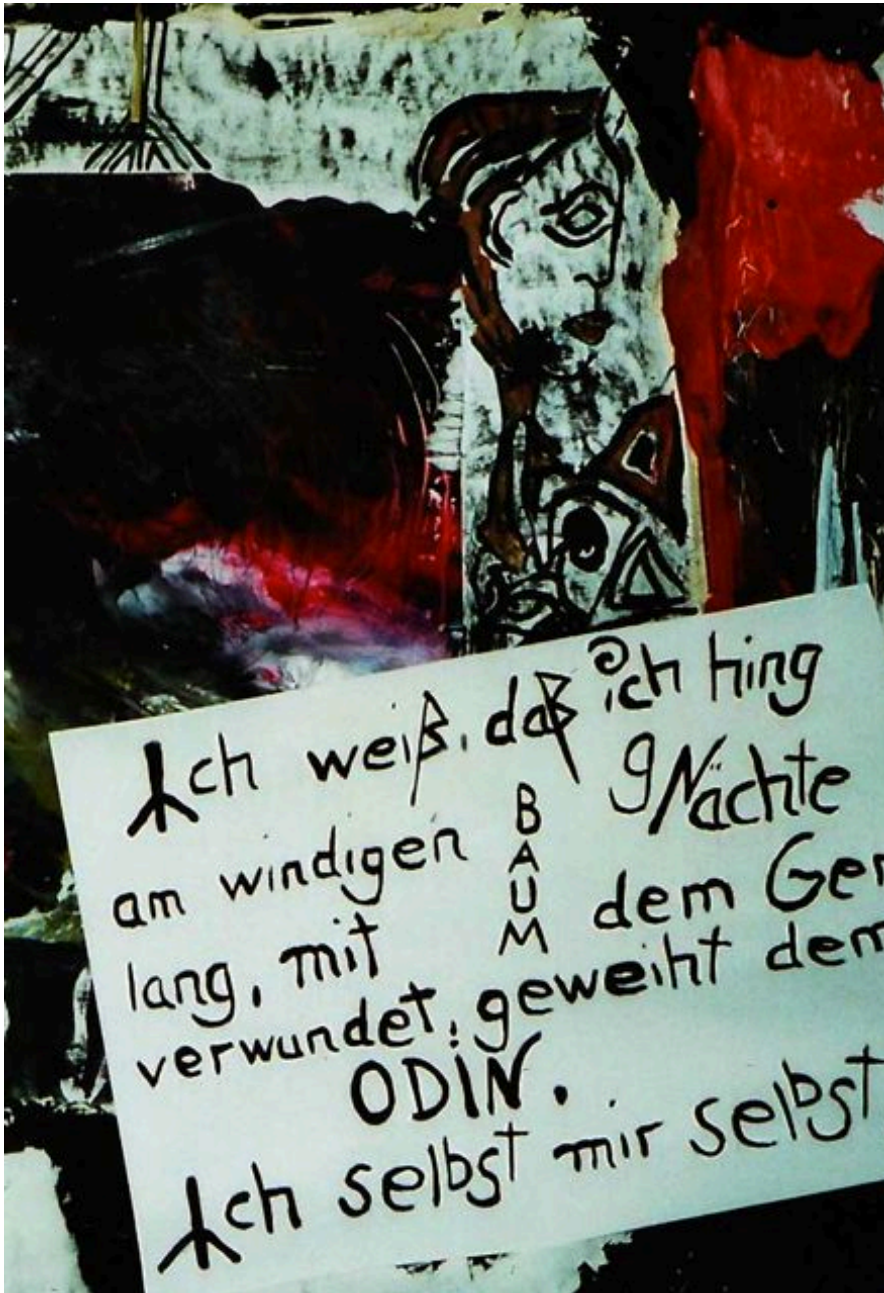 Ich weiß, daß ich hing
am windigen BAUM 9 Nächte
lang, mit dem Ger
verwundet, geweiht dem
ODIN.
Ich selbst mir selbst